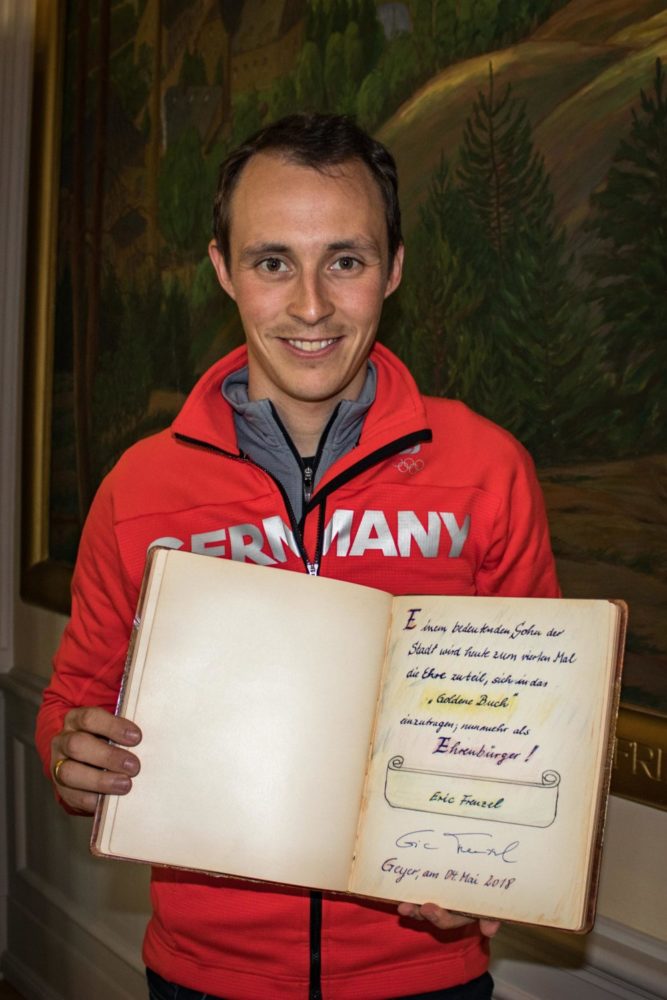 GERMANY
Einem bedeutenden Sohn der
Stadt wird heute zum vierten Mal
die Ehre zuteil, sich in das
„Goldene Buch"
einzutragen; nunmehr als
Ehrenbürger!
Eric Frenzel
Eric Frenzel
Geyer, am 04. Mai 2018
FRI